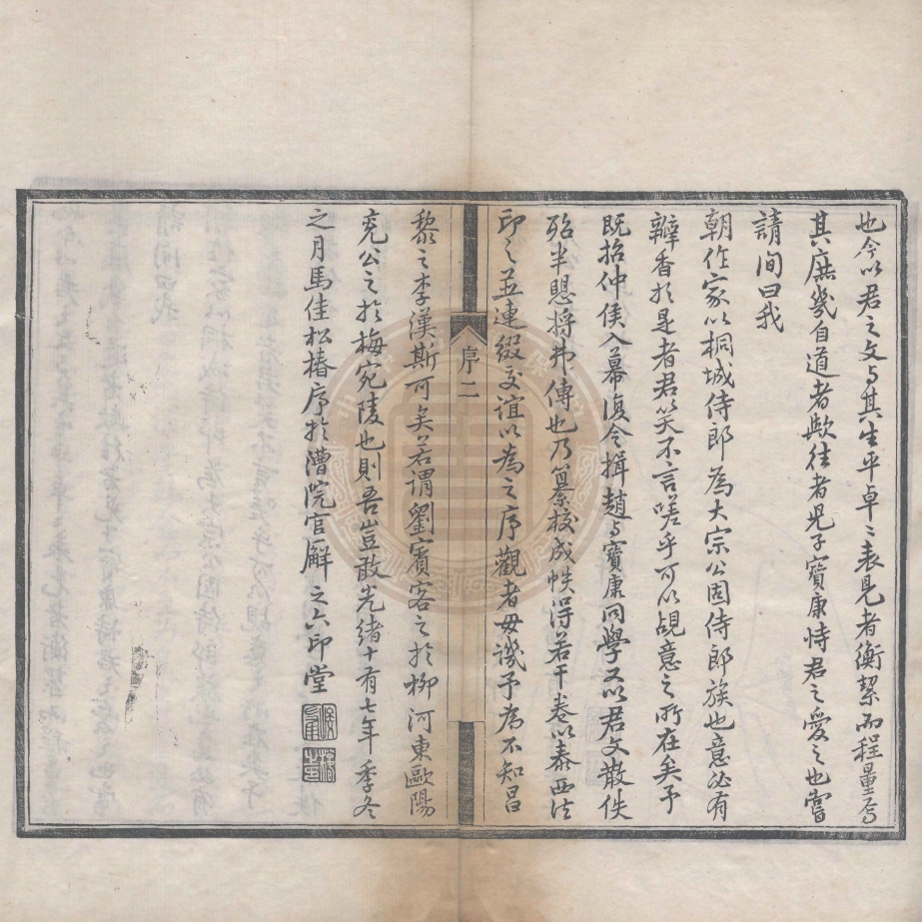 也今以君之文与其生平卓〻表見者衡絜而程量焉
其庶幾自道者歟往者兒子寶康恃君之愛之也嘗
請間曰我
朝作家以桐城侍郎為大宗公固侍郎族也意必有
瓣香於是者君笑不言嗟乎可以覘意之所在矣予
既招仲侯入幕復令揖趙与寶康同學又以君文散佚
殆半懸將弗傳也乃纂校成帙得若干卷以泰西法
印之並連綴交誼以為之序觀者毋譏予為不知呂
序二
黎之李漢斯可矣若謂劉賓客之於柳河東歐陽
兗公之於梅宛陵也則吾豈敢光緒十有七年季冬
之月馬佳松椿序於漕院官廨之六印堂